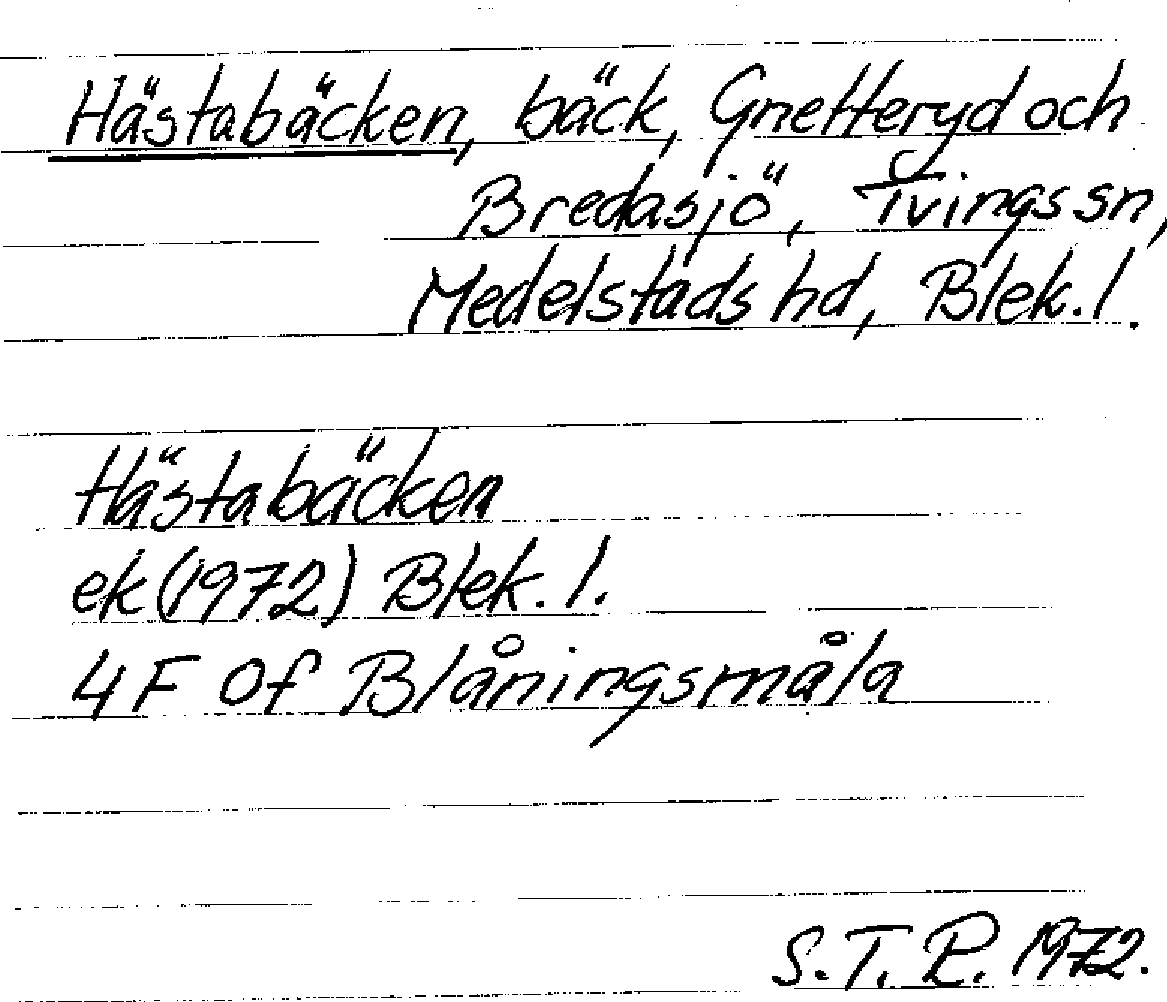 Hästabäcken, bäck, Gnetteryd och
Bredasjö, Tvings sn,
Medelstads hd, Blek. l.
Hästabäcken
ek (1972) Blek. l.
4 F 0f Blåningsmåla
S. T. R. 1972.